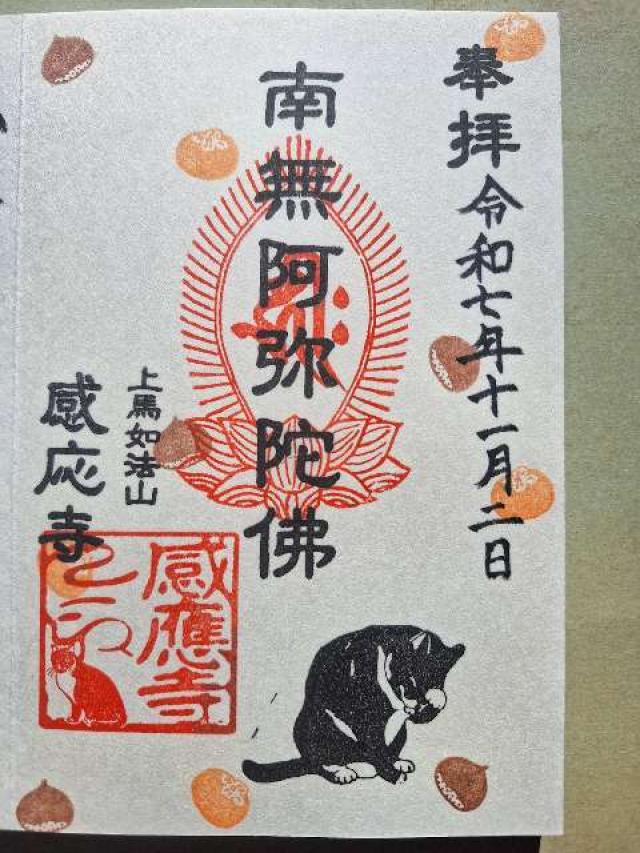 奉拝 令和七年十一月二日
南無阿弥陀佛
上馬如法山
感応寺
感應寺